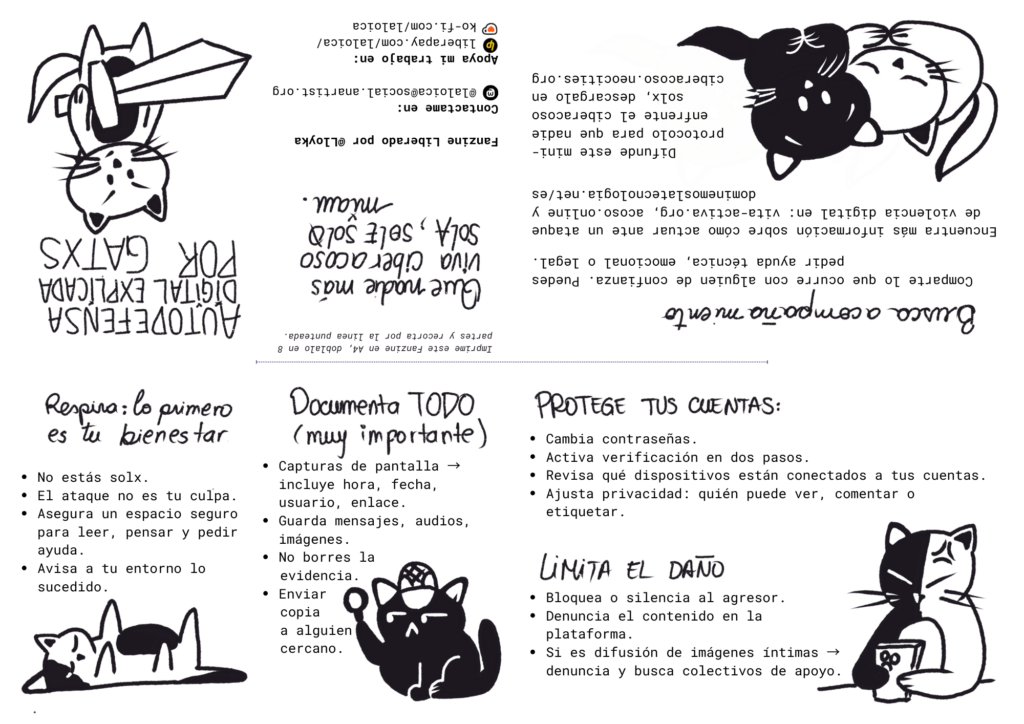 AUTODEFENSA
DIGITAL EXPLICADA
POR
GATXS
Respira: lo primero
es tu bienestar
• No estás solx.
• El ataque no es tu culpa.
• Asegura un espacio seguro
para leer, pensar y pedir
ayuda.
• Avisa a tu entorno lo
sucedido.
Documenta TODO
(muy importante)
• Capturas de pantalla →
incluye hora, fecha,
usuario, enlace.
• Guarda mensajes, audios,
imágenes.
• No borres la
evidencia.
• Enviar
copia
a alguien
cercano.
PROTEGE TUS CUENTAS:
• Cambia contraseñas.
• Activa verificación en dos pasos.
• Revisa qué dispositivos están conectados a tus cuentas.
• Ajusta privacidad: quién puede ver, comentar o
etiquetar.
LIMITA EL DAÑO
• Bloquea o silencia al agresor.
• Denuncia el contenido en la
plataforma.
• Si es difusión de imágenes íntimas →
denuncia y busca colectivos de apoyo.
Busca acompañamiento
Comparte lo que ocurre con alguien de confianza. Puedes
pedir ayuda técnica, emocional o legal.
Encuentra más información sobre cómo actuar ante un ataque
de violencia digital en: vita-activa.org, acoso.online y
dominemoslatecnologia.net/es
Difunde este mini-
protocolo para que nadie
enfrente el ciberacoso
solx, descargalo en
ciberacoso.neocities.org
Imprime este Fanzine en A4, doblalo en 8
partes y recorta por la línea punteada.
Que nadie más
viva ciberacoso
SOLA, SOLE, SOLO
miau.
Fanzine Liberado por @Lloyka
Contactame en:
@laloica@social.anartist.org
Apoya mi trabajo en:
liberapay.com/laloica/
ko-fi.com/laloica